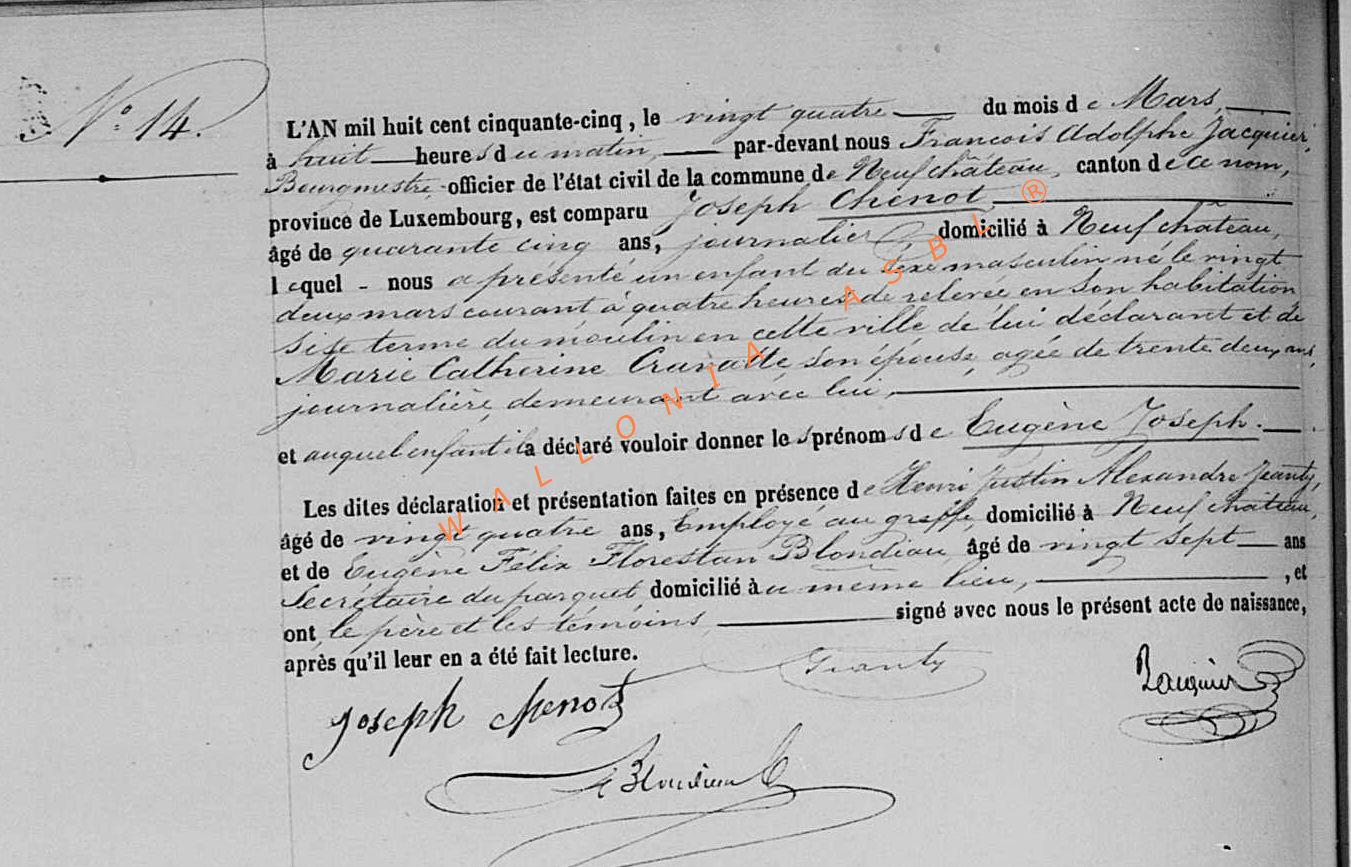 N° 14.
L'AN mil huit cent cinquante-cinq, le vingt quatre du mois de Mars,
à huit heures du matin, par-devant nous François Adolphe Jacquier,
Bourgmestre officier de l'état civil de la commune de Neufchâteau, canton de ce nom,
province de Luxembourg, est comparu Joseph Chenot,
âgé de quarante cinq ans, journalier, domicilié à Neufchâteau,
lequel - nous a présenté un enfant du sexe masculin né le vingt
deux mars courant à quatre heures de relevée en son habitation
sise terme du moulin en cette ville de lui déclarant et de
Marie Catherine Cravatte son épouse, agée de trente deux ans,
journalière, demeurant avec lui,
et auquel enfant il a déclaré vouloir donner les prénoms de Eugène Joseph.
Les dites déclaration et présentation faites en présence de Henri Justin Alexandre Jeanty,
âgé de vingt quatre ans, Employé au greffe domicilié à Neufchâteau,
et de Eugène Félix Florestan Blondiau, âgé de vingt sept ans
Secrétaire du parquet domicilié au même lieu, , et
ont le père et les témoins, signé avec nous le présent acte de naissance,
après qu'il leur en a été fait lecture.
Jeanty
Jacquier
Joseph Chenot
Blondiau
WALLONIA ASBL ®